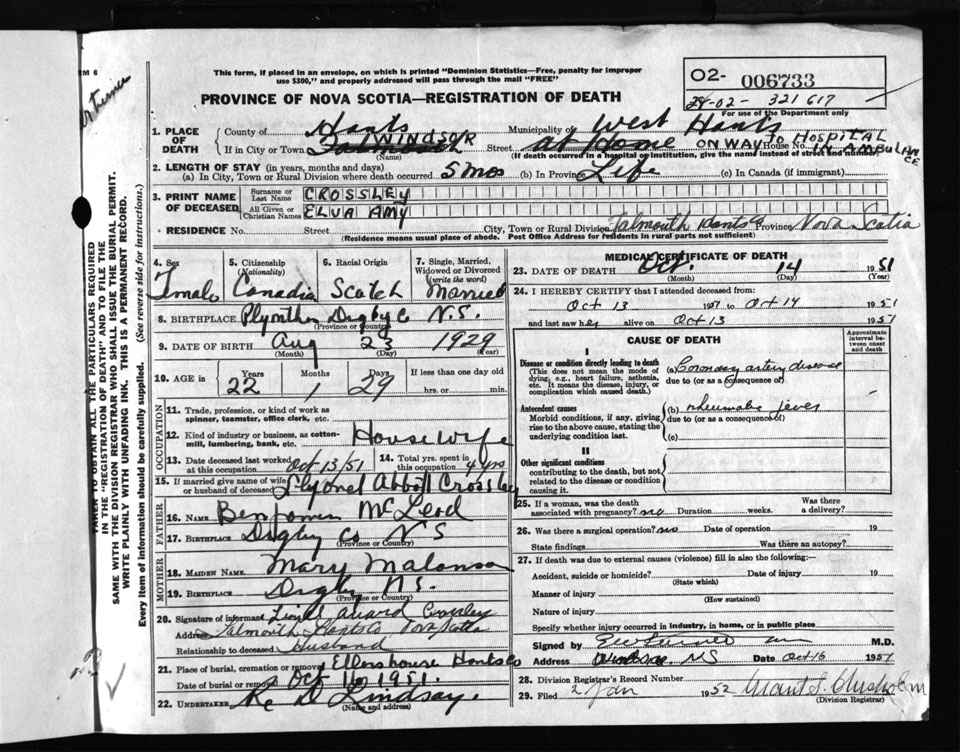 This form, if placed in an envelope, on which is printed "Dominion Statistics—Free, penalty for improper
use $300," and properly addressed will pass through the mail "FREE"
PROVINCE OF NOVA SCOTIA—REGISTRATION OF DEATH
02- 006733
24-02- 321617
For use of the Department only
1. PLACE OF DEATH County of Hants Municipality of West Hants
If in City or Town Falmouth WINDSOR Street at Home ON WAY TO HOSPITAL House No. IN AMBULANCE
(Name) (If death occurred in a hospital or institution, give the name instead of street and number)
2. LENGTH OF STAY (in years, months and days)
(a) In City, Town or Rural Division where death occurred 5 mos (b) In Province Life (c) In Canada (if immigrant)
3. PRINT NAME OF DECEASED Surname or Last Name CROSSLEY
All Given or Christian Names ELVA AMY
RESIDENCE No. Street City, Town or Rural Division Falmouth Hants Co Province Nova Scotia
(Residence means usual place of abode. Post Office Address for residents in rural parts not sufficient)
4. Sex 5. Citizenship (Nationality) 6. Racial Origin 7. Single, Married, Widowed or Divorced (write the word)
Female Canadian Scotch Married
8. BIRTHPLACE Digby Co N.S.
(Province or Country)
9. DATE OF BIRTH Aug 23 1929
(Month) (Day) (Year)
10. AGE in Years Months Days If less than one day old
22 1 29 hrs. or min.
OCCUPATION
11. Trade, profession, or kind of work as spinner, teamster, office clerk, etc.
12. Kind of industry or business, as cotton-mill, lumbering, bank, etc. Housewife
13. Date deceased last worked at this occupation Oct 13/51 14. Total yrs. spent in this occupation 4 yrs
15. If married give name of wife or husband of deceased Abbott Crossley
FATHER
16. NAME Benjamin McLeod
17. BIRTHPLACE Digby Co NS
(Province or Country)
MOTHER
18. MAIDEN NAME Mary
19. BIRTHPLACE Digby N.S.
(Province or Country)
20. Signature of informant Crossley
Address Falmouth Hants Co Nova Scotia
Relationship to deceased Husband
21. Place of burial, cremation or removal Ellershouse Hants Co
Date of burial or removal Oct 16 1951.
22. UNDERTAKER D Lindsay
(Name and address)
MEDICAL CERTIFICATE OF DEATH
23. DATE OF DEATH Oct. 14 1951
(Month) (Day) (Year)
24. I HEREBY CERTIFY that I attended deceased from:
Oct 13 1951 to Oct 14 1951
and last saw her alive on Oct 13 1951
CAUSE OF DEATH
Approximate interval between onset and death
I
Disease or condition directly leading to death (a) Coronary artery disease
(This does not mean the mode of dying, e.g., heart failure, asthenia, etc. It means the disease, injury, or complication which caused death.) due to (or as a consequence of)
Antecedent causes (b) rheumatic fever
Morbid conditions, if any, giving rise to the above cause, stating the underlying condition last. due to (or as a consequence of)
(c)
II
Other significant conditions
contributing to the death, but not related to the disease or condition causing it.
25. If a woman, was the death associated with pregnancy? no Duration weeks. Was there a delivery?
26. Was there a surgical operation? no Date of operation 19
State findings Was there an autopsy?
27. If death was due to external causes (violence) fill in also the following:—
Accident, suicide or homicide? Date of injury 19
(State which)
Manner of injury
(How sustained)
Nature of injury
Specify whether injury occurred in industry, in home, or in public place
Signed by M.D.
Address Windsor NS Date Oct 16 1951
28. Division Registrar's Record Number
29. Filed 2 Jan 1952 Grant Chisholm
(Division Registrar)
TAKEN TO OBTAIN ALL THE PARTICULARS REQUIRED
IN THE "REGISTRATION OF DEATH" AND TO FILE THE
SAME WITH THE DIVISION REGISTRAR WHO SHALL ISSUE THE BURIAL PERMIT.
WRITE PLAINLY WITH UNFADING INK. THIS IS A PERMANENT RECORD.
Every item of information should be carefully supplied. (See reverse side for instructions.)